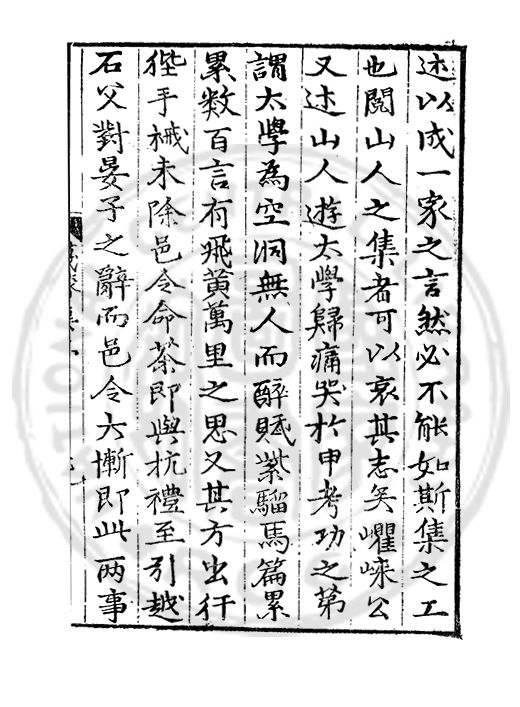 述以成一家之言然必不能如斯集之工
也閱山人之集者可以哀其志矣懼崍公
又述山人遊太學歸痛哭於申考功之第
謂太學為空洞無人而醉賦紫騮馬篇累
累数百言有飛黄萬里之思又其方出犴
狴手械未除邑令命茶即與抗禮至引越
石父對晏子之辭而邑令大慚即此两事